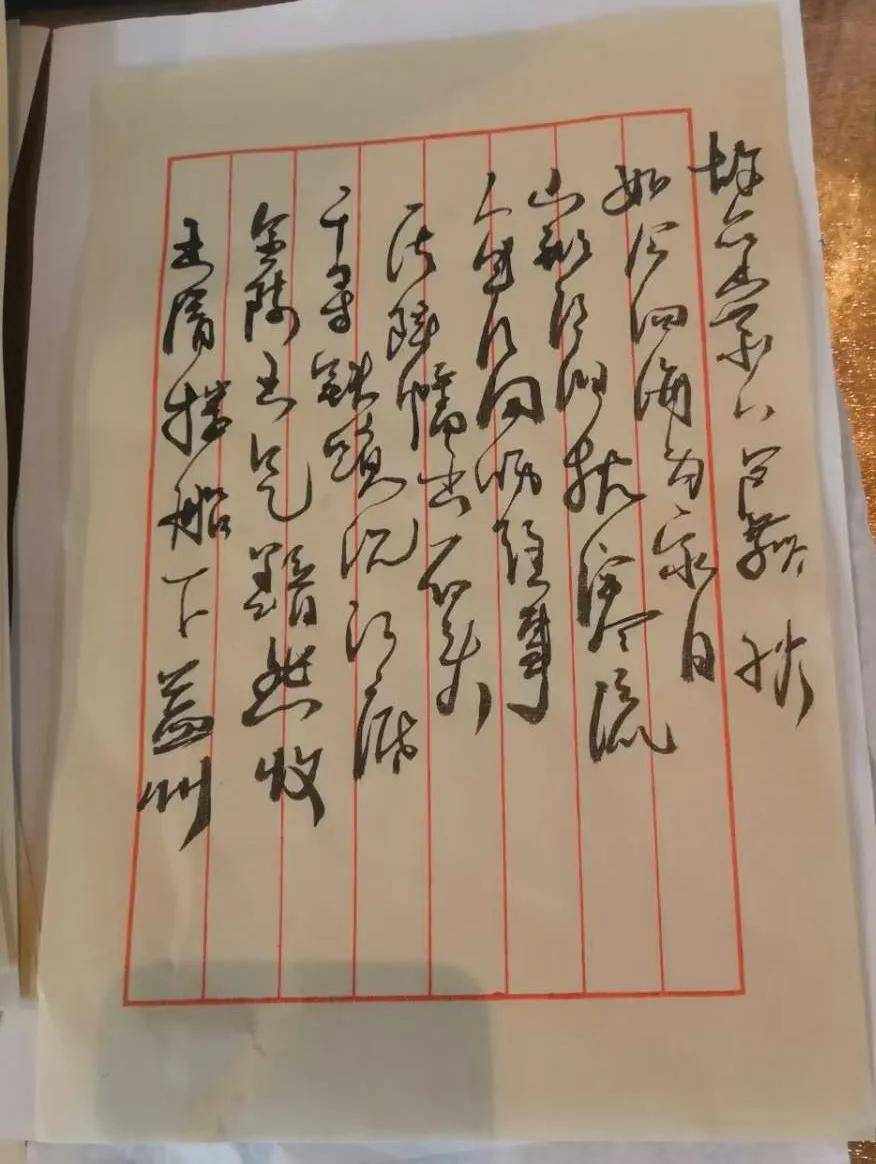 王濬楼船下益州
金陵王气黯然收
千寻鐵锁沉江底
一片降幡出石头
人世几回伤往事
山形依旧枕寒流
如今四海为家日
故垒萧萧芦荻秋